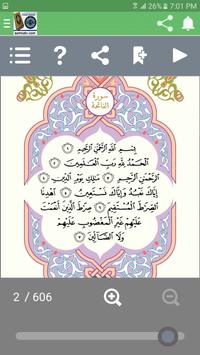 7:01 PM
سورة
الفاتحة
بِسْمِ ٱللَّهِ ٱلرَّحْمَٰنِ ٱلرَّحِيمِ ١
ٱلْحَمْدُ لِلَّهِ رَبِّ ٱلْعَٰلَمِينَ ٢
ٱلرَّحْمَٰنِ ٱلرَّحِيمِ ٣ مَٰلِكِ يَوْمِ ٱلدِّينِ ٤
إِيَّاكَ نَعْبُدُ وَإِيَّاكَ نَسْتَعِينُ ٥ ٱهْدِنَا
ٱلصِّرَٰطَ ٱلْمُسْتَقِيمَ ٦ صِرَٰطَ ٱلَّذِينَ أَنْعَمْتَ
عَلَيْهِمْ غَيْرِ ٱلْمَغْضُوبِ عَلَيْهِمْ
وَلَا ٱلضَّآلِّينَ ٧
2 / 606